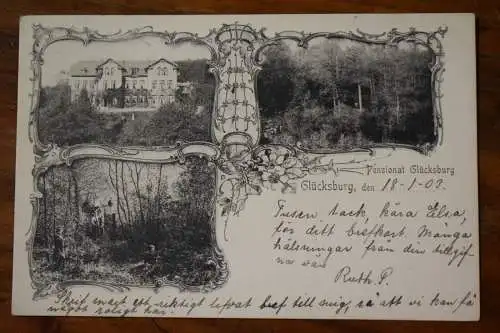 Pensionat Glücksburg
Glücksburg, den 18-1-02.
Tusen tack, kära Elsa,
för ditt brefkort. Många
hälsningar från din tillgif-
na vän
Ruth P.
Skrif snart ett riktigt lefvat bref till mig, så att vi kan få
något roligt här.